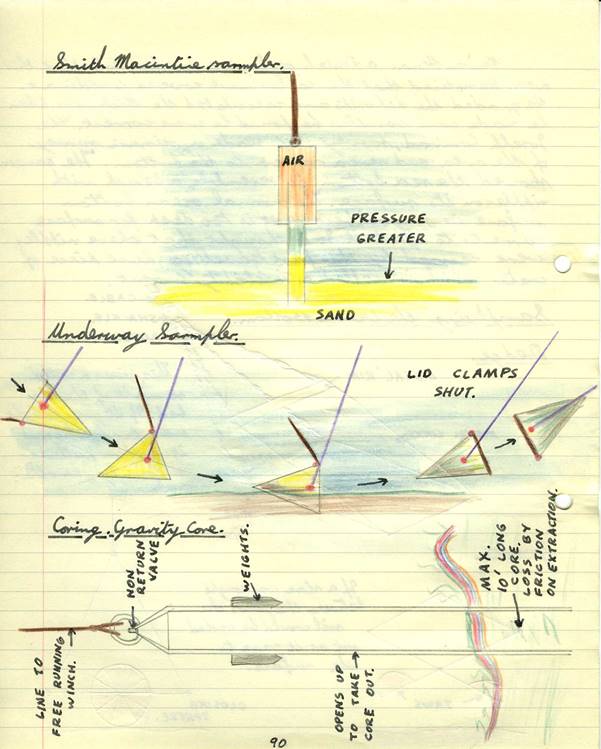 Smith Macintire sampler.
AIR
PRESSURE
GREATER
SAND
Underway Sampler.
LID CLAMPS
SHUT.
Coring. Gravity Core.
NON
RETURN
VALVE
WEIGHTS.
MAX.
10' LONG
CORE.
LOSS BY
FRICTION
ON EXTRACTION.
LINE TO
FREE RUNNING
WINCH.
OPENS UP
TO TAKE
CORE OUT.
90